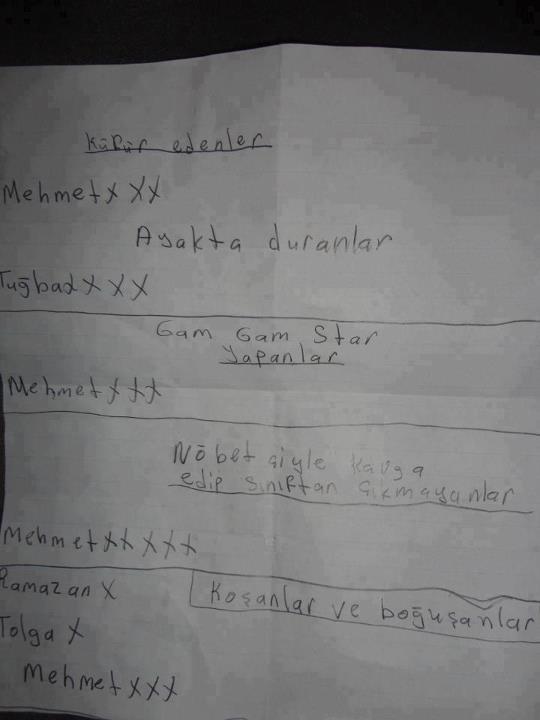 Küfür edenler
Mehmet X X X
Ayakta duranlar
Tuğbad X X X
Gam Gam Star
yapanlar
Mehmet X X X
Nöbetçiyle kavga
edip sınıftan çıkmayanlar
Mehmet X X X X X
Ramazan X
Koşanlar ve boğuşanlar
Tolga X
Mehmet X X X